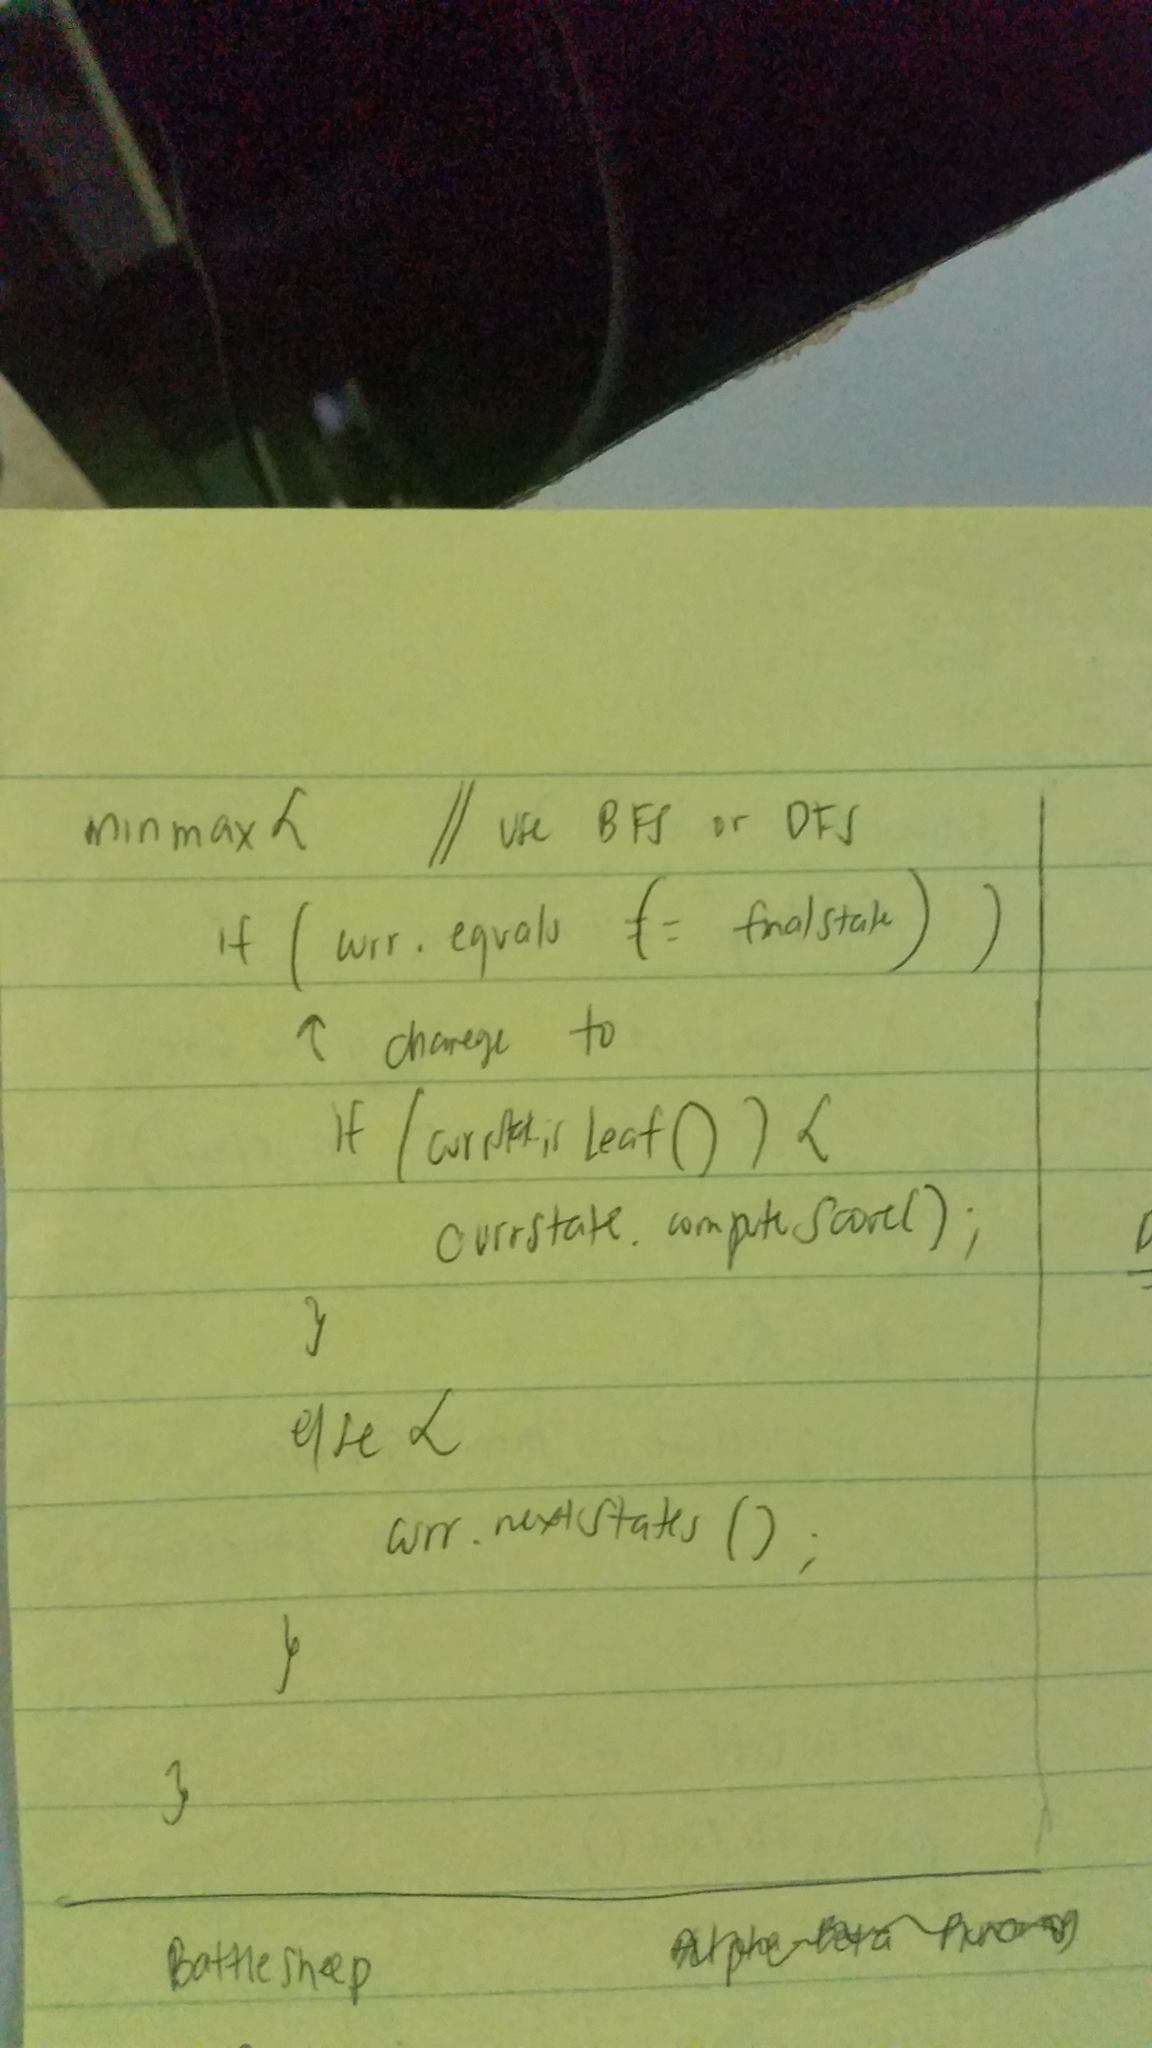 minmax {     // use BFS or DFS
if ( curr. equals (!= finalstate) )
↑ change to
if (currstate.is Leaf()) {
currstate. compute Score();
}
else {
curr. nextStates ();
}
}
Battlesheep     Alpha-Beta Pruning